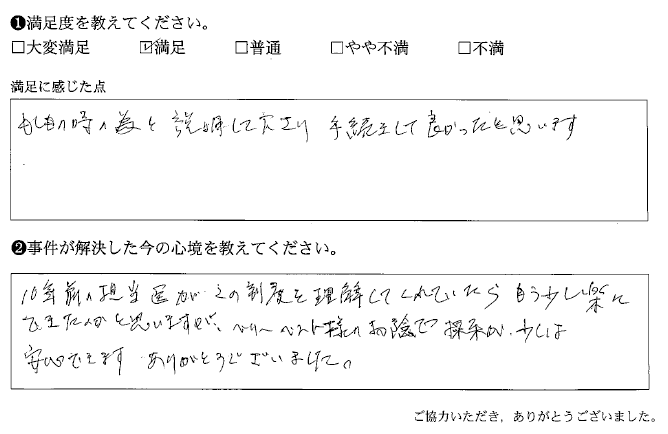 ❶満足度を教えてください。
□大変満足 ☑満足 □普通 □やや不満 □不満
満足に感じた点
もしもの時の為と説明して下さり 手続きして良かったと思います
❷事件が解決した今の心境を教えてください。
10年前の担当医がこの制度を理解してくれていたら もう少し楽に
できたのかと思いますが、ベリーベスト様のお陰で 採采が 少しは
安心できます ありがとうございました。
ご協力いただき，ありがとうございました。